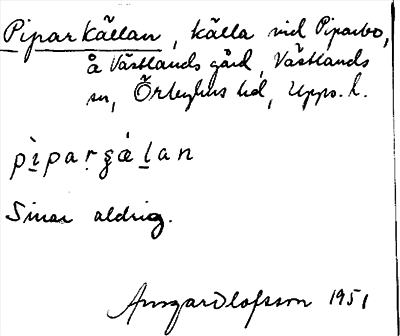 Piparkällan, källa vid Piparbo,
å Västlands gård, Västlands
sn, Örbyhus hd, Upps. l.
pìparg̨ä̀lan
Sinar aldrig.
Ansgar Olofsson 1951